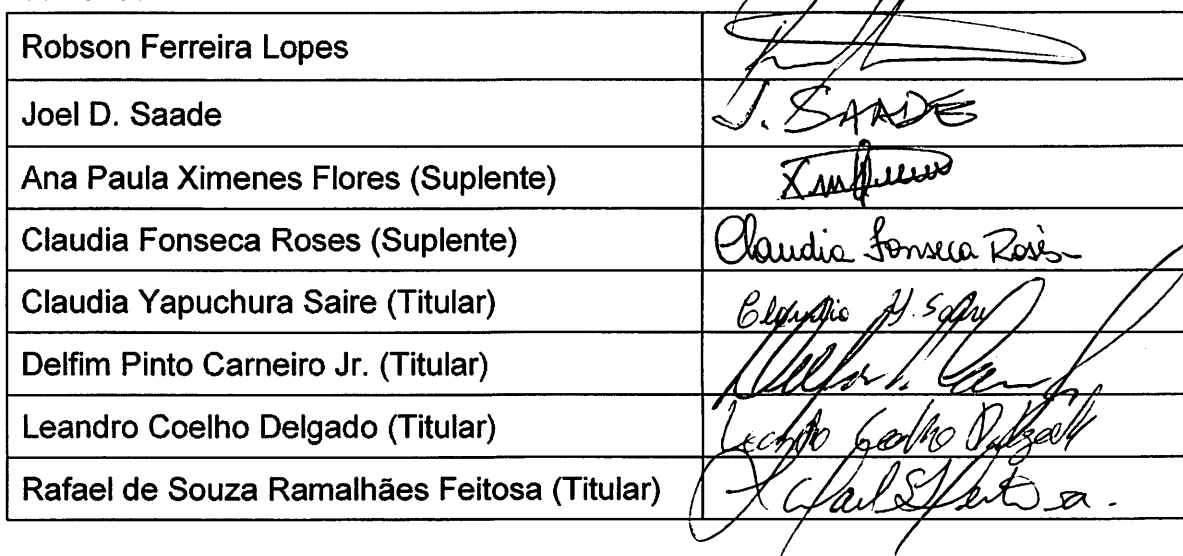 Robson Ferreira Lopes
Joel D. Saade J. SAADE
Ana Paula Ximenes Flores (Suplente)
Claudia Fonseca Roses (Suplente) Claudia Fonseca Roses
Claudia Yapuchura Saire (Titular) Claudia Y. Saire
Delfim Pinto Carneiro Jr. (Titular)
Leandro Coelho Delgado (Titular) Leandro Coelho Delgado
Rafael de Souza Ramalhães Feitosa (Titular) Rafael S Feitosa.